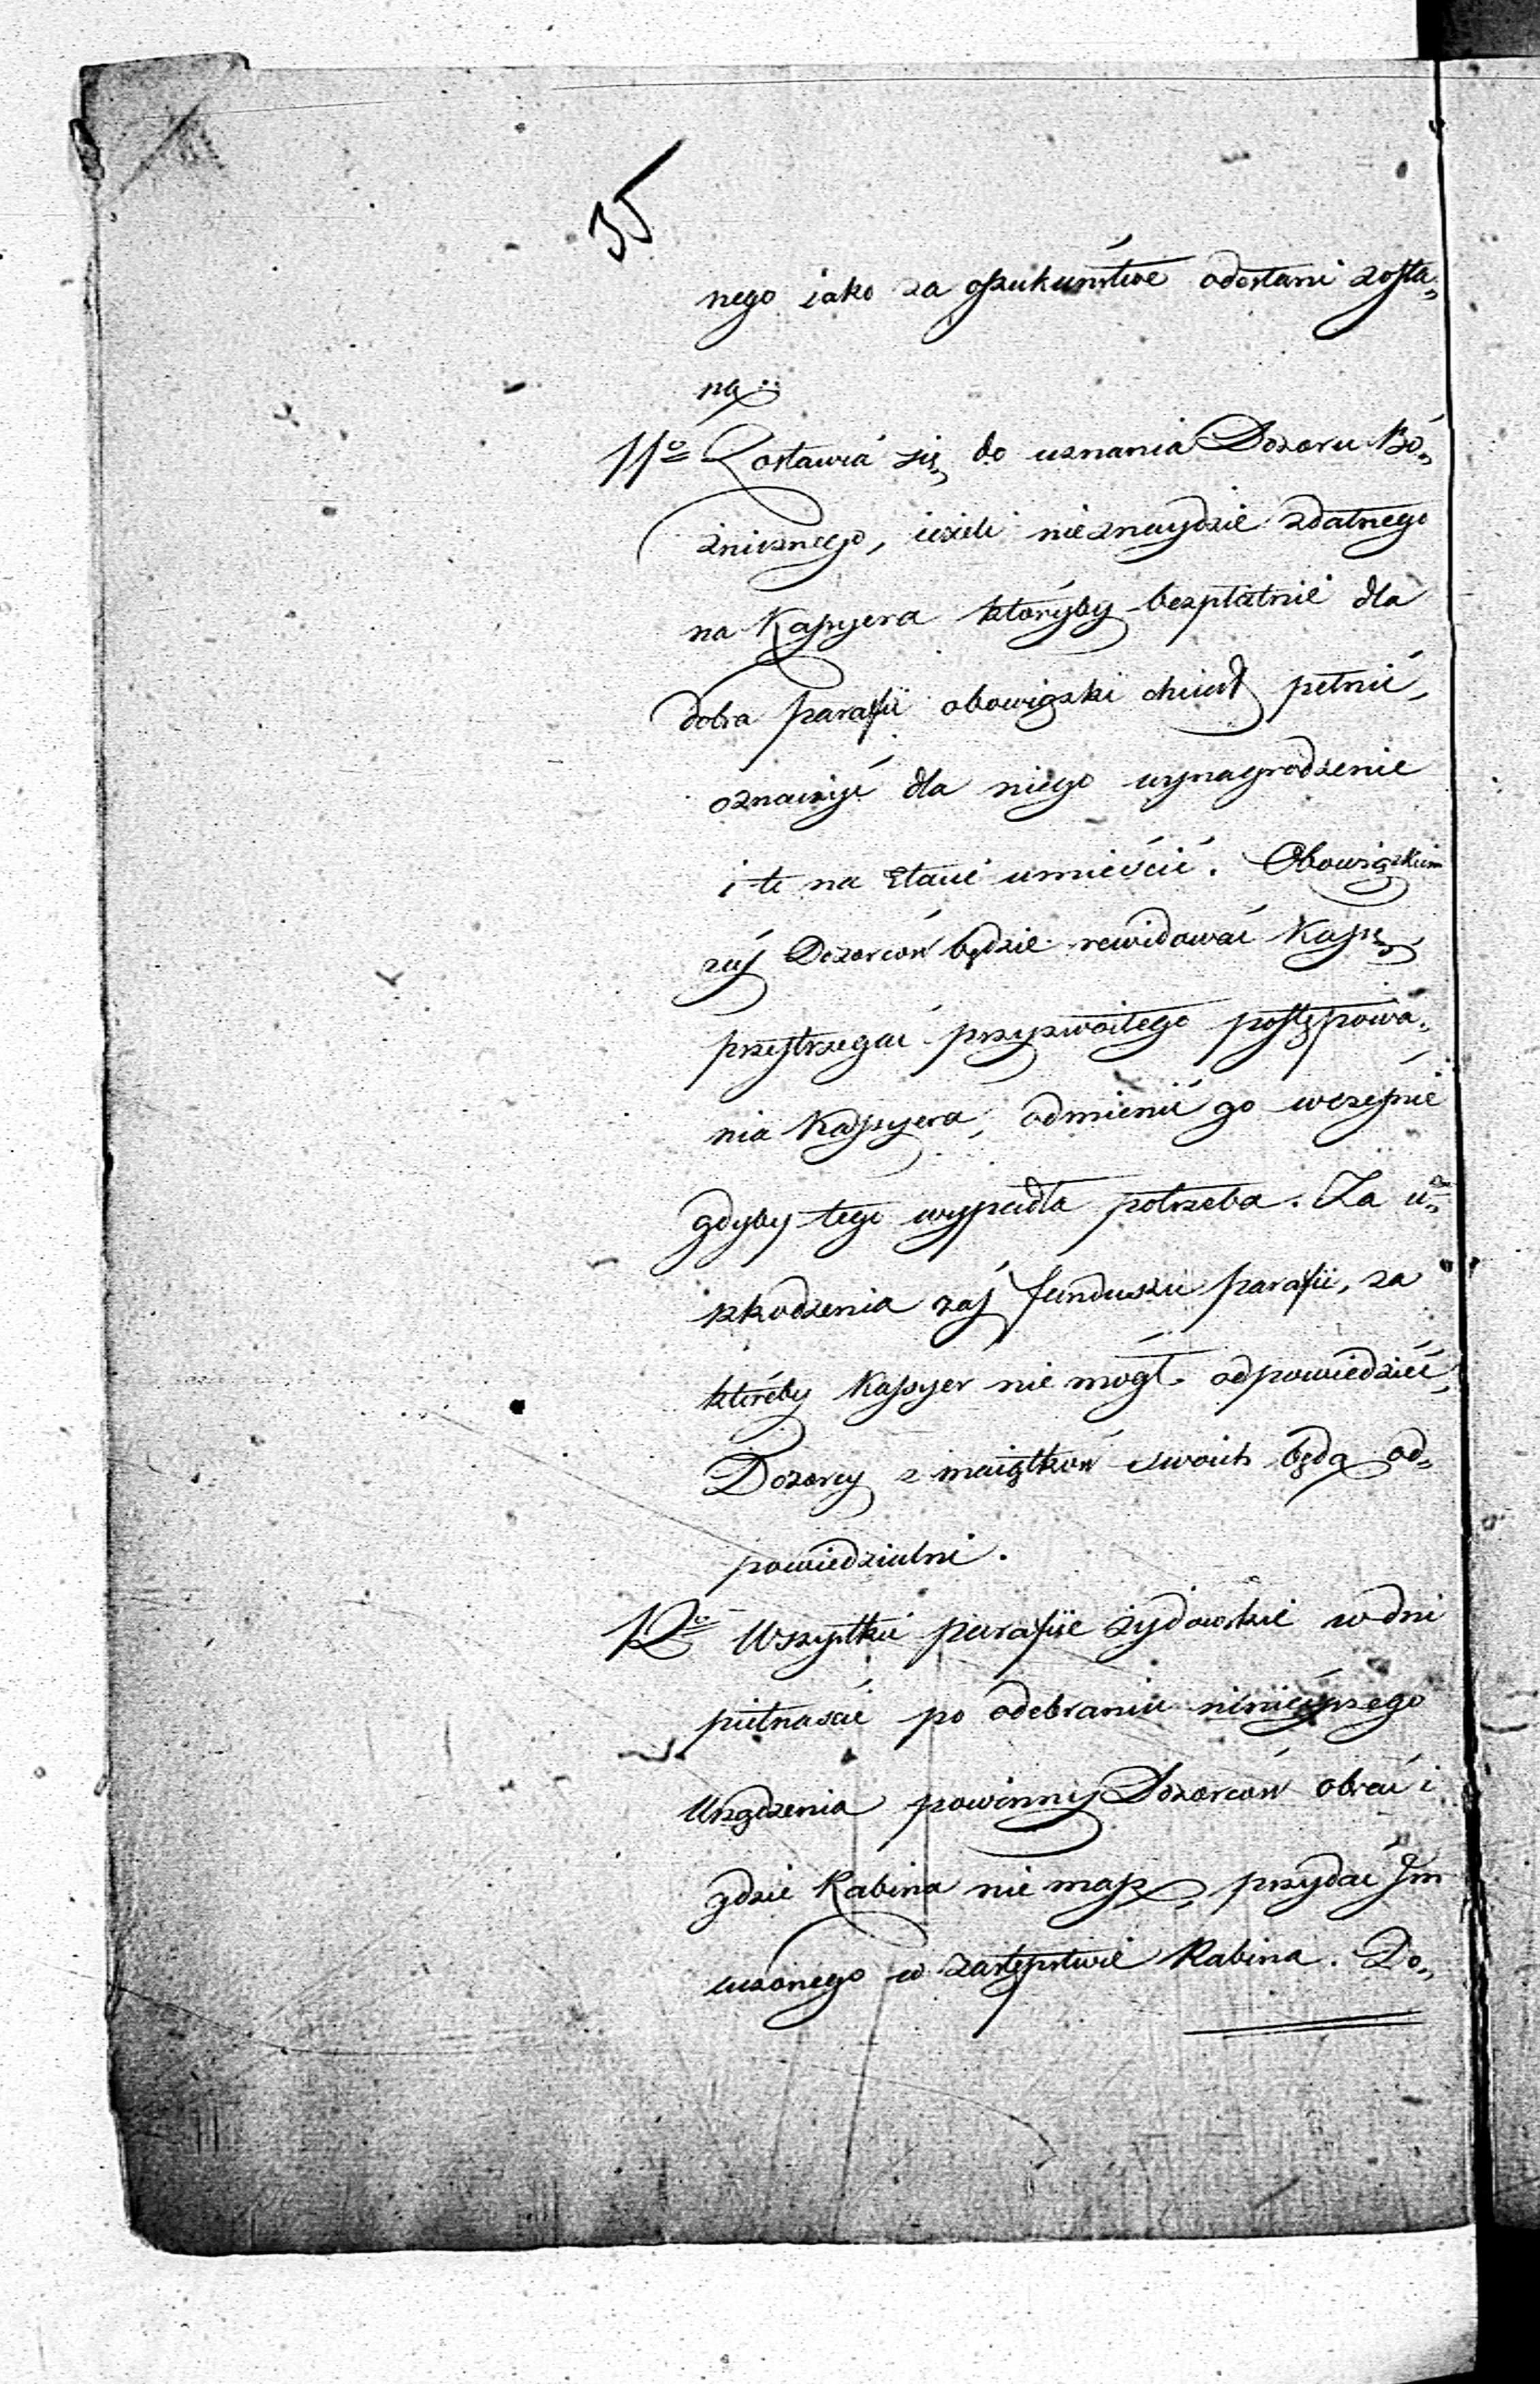 35
nego iako za oszukaństwo odesłani zosta„
ną.
11o Zostawia się do uznania Dozoru Bó„
żnicznego, ieżeli nieznaydzie zdatnego
na Kassyera któryby bezpłatnie dla
dobra parafii obowiązki chciał pełnić,
oznaczyć dla niego wynagrodzenie
i te na Etacie umieścić. Obowiązkiem
zaś Dozorców będzie rewidować Kassę,
przestrzegać przyzwoitego postępowa„
nia Kassyera, odmienić go wcześnie
gdyby tego wypadła potrzeba. Za u„
szkodzenia zaś funduszu parafii, za
któreby Kassyer nie mógł odpowiedzieć,
Dozorcy z maiątków swoich będą od„
powiedzialni.
12o Wszystkie parafiie żydowskie w dni
pietnaście po odebraniu ninieyszego
Urządzenia powinny Dozorców obrać i
gdzie Rabina nie maią, przydać Jm
uczonego w zastępstwie Rabina. Do„